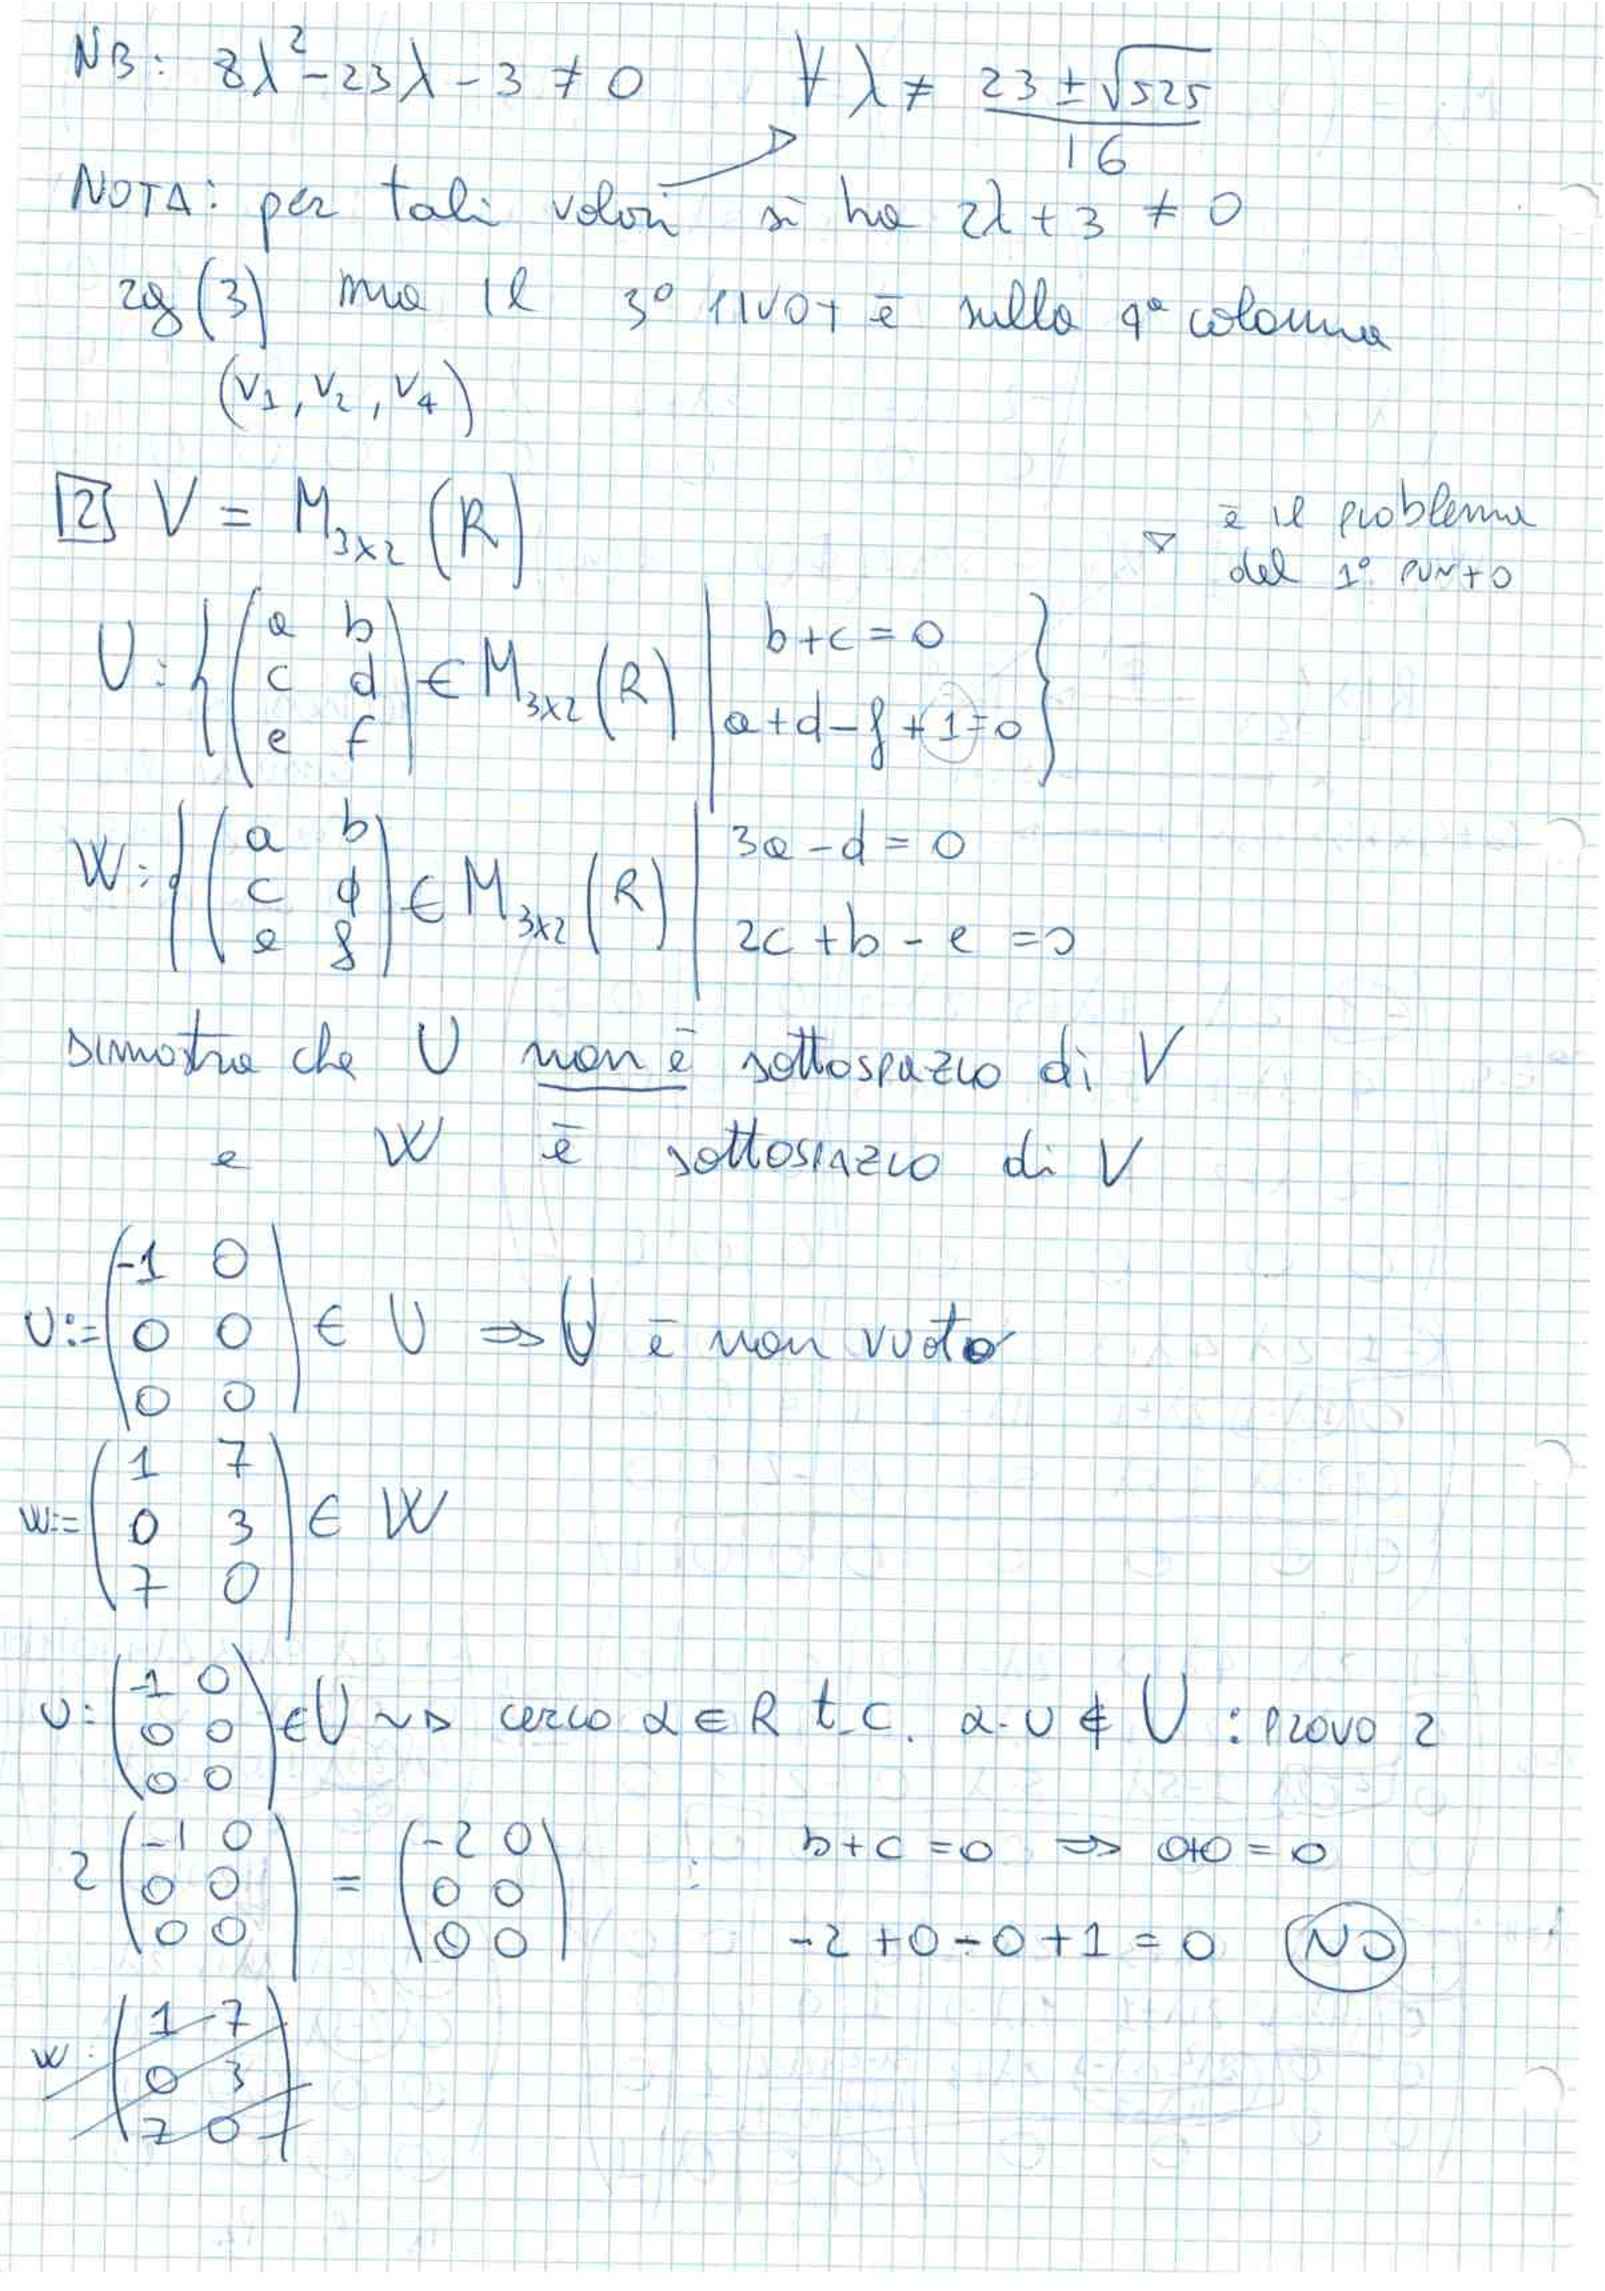 NB: 8λ² - 23λ - 3 ≠ 0   ∀ λ ≠ (23 ± √525)/16
NOTA: per tali valori si ha 2λ + 3 ≠ 0
rg(3) ma il 3° PIVOT è sulla 4ª colonna
(v₁, v₂, v₄)
[2] V = M₃ₓ₂ (R)
è il problema
del 1° PUNTO
U: { (a b; c d; e f) ∈ M₃ₓ₂ (R) | b+c = 0   a+d-f+1=0 }
W: { (a b; c d; e f) ∈ M₃ₓ₂ (R) | 3a - d = 0   2c + b - e = 0
Dimostra che U non è sottospazio di V
e W è sottospazio di V
U := (-1 0; 0 0; 0 0) ∈ U ⇒ U è non vuoto
W := (1 7; 0 3; 7 0) ∈ W
U: (-1 0; 0 0; 0 0) ∈ U ~▷ cerco α ∈ R t.c. α·U ∉ U : PROVO 2
2 (-1 0; 0 0; 0 0) = (-2 0; 0 0; 0 0) : b+c = 0 ⇒ 0+0 = 0
-2 + 0 - 0 + 1 = 0 NO
W: (1 7; 0 3; 7 0)